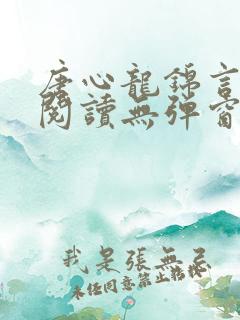 唐心龍錦言
閱讀無彈窗
我是張無忌
未經同意禁止轉載